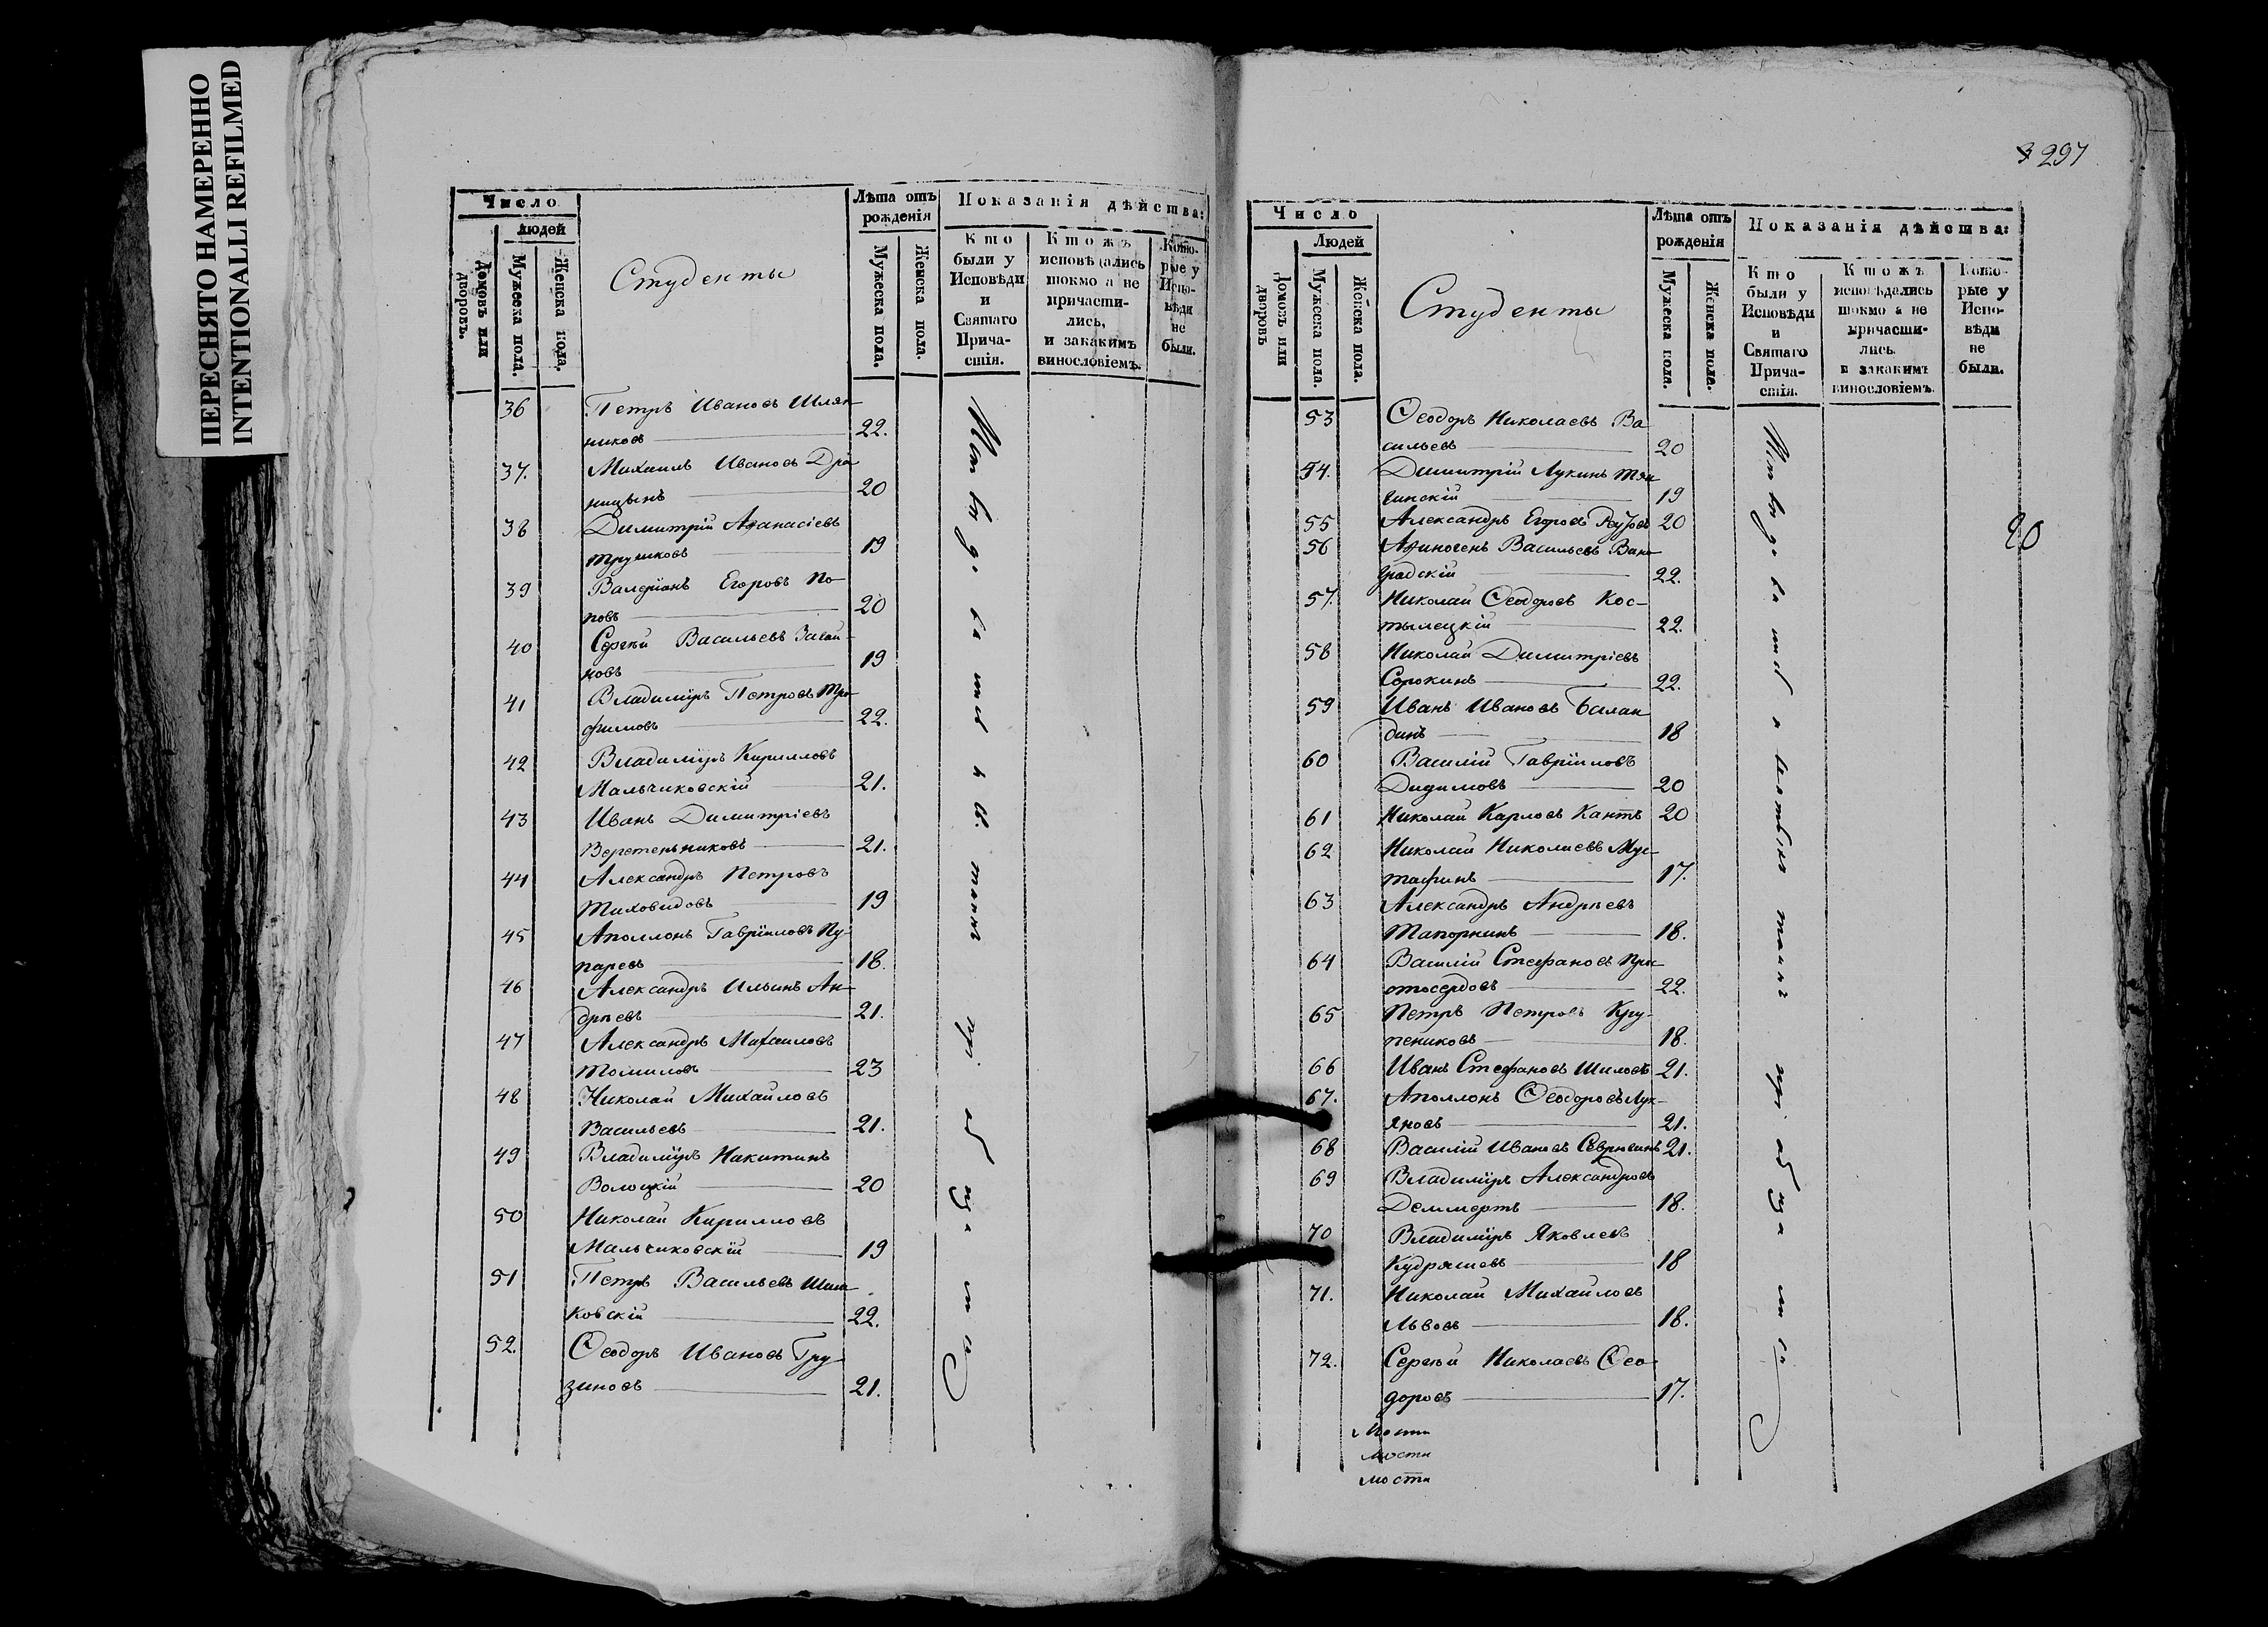 ПЕРЕСНЯТО НАМЕРЕННО
INTENTIONALLI REFILMED
Число
людей
Домовъ или дворовъ.
Мужеска пола.
Женска пола.
Студенты
Лѣта отъ рожденія
Мужеска пола.
Женска пола.
Показанія дѣйства:
Кто были у Исповѣди и Святаго Прича-стія.
Ктожъ исповѣдались токмо а не причасти-лись, и закакимъ винословіемъ.
Кото-рые у Испо-вѣди не были.
36 Петръ Ивановъ Шлян
никовъ 22.
37. Михаилъ Ивановъ Дра
ницынъ 20
38 Димитрій Аѳанасіевъ
Трушковъ 19
39 Валеріанъ Егоровъ По-
повъ 20
40 Сергѣй Васильевъ
новъ 19
41 Владиміръ Петровъ Тро
фимовъ 22.
42 Владиміръ Кирилловъ
Мальчиковскій 21.
43 Иванъ Димитріевъ
Веретенниковъ 21.
44 Александръ Петровъ
Тиховидовъ 19
45 Аполлонъ Гавріиловъ Пу-
паревъ 18.
46 Александръ Ильинъ Ан-
дреевъ 21.
47 Александръ Михаиловъ
Томиловъ 23
48 Николай Михайловъ
Васильевъ 21.
49 Владиміръ Никитинъ
Волоцкій 20
50 Николай Кирилловъ
Мальчиковскій 19
51 Петръ Васильевъ Шиш
ковскій 22.
52. Ѳеодоръ Ивановъ Гру-
зиновъ 21.
297
Число
Людей
Домовъ или дворовъ
Мужеска пола.
Женска пола.
Студенты
Лѣта отъ рожденія
Мужеска пола.
Женска пола.
Показанія дѣйства:
Кто были у Исповѣди и Святаго Прича-стія.
Ктожъ исповѣдались токмо а не причасти-лись. и закакимъ винословіемъ.
Кото-рые у Испо-вѣди не были.
53 Ѳеодоръ Николаевъ Ва
сильевъ 20
54. Димитрій Лукинъ Тян
чинскій 19
55 Александръ Егоровъ 20
56 Аѳиногенъ Васильевъ Вино
градскій 22.
57. Николай Ѳеодоровъ Кос-
тылецкій 22.
58 Николай Димитріевъ
Сорокинъ 22.
59 Иванъ Ивановъ Балан
динъ 18
60 Василій Гавріиловъ
Дидимовъ 20
61 Николай Карловъ Кантъ 20
62 Николай Николаевъ Мус-
тафинъ 17.
63 Александръ Андреевъ
Тапоркинъ 18.
64 Василій Стефановъ Прос
тосердовъ 22.
65 Петръ Петровъ Кру-
пениковъ 18.
66 Иванъ Стефановъ Шиловъ 21.
67. Аполлонъ Ѳеодоровъ Лук-
яновъ 21.
68 Василій Ивановъ Севрюгинъ 21.
69 Владиміръ Александровъ
Деммертъ 18.
70 Владиміръ Яковлевъ
Кудряшевъ 18
71. Николай Михайловъ
Львовъ 18.
72. Сергѣй Николаевъ Ѳео
доровъ 17.
20
мости
мости